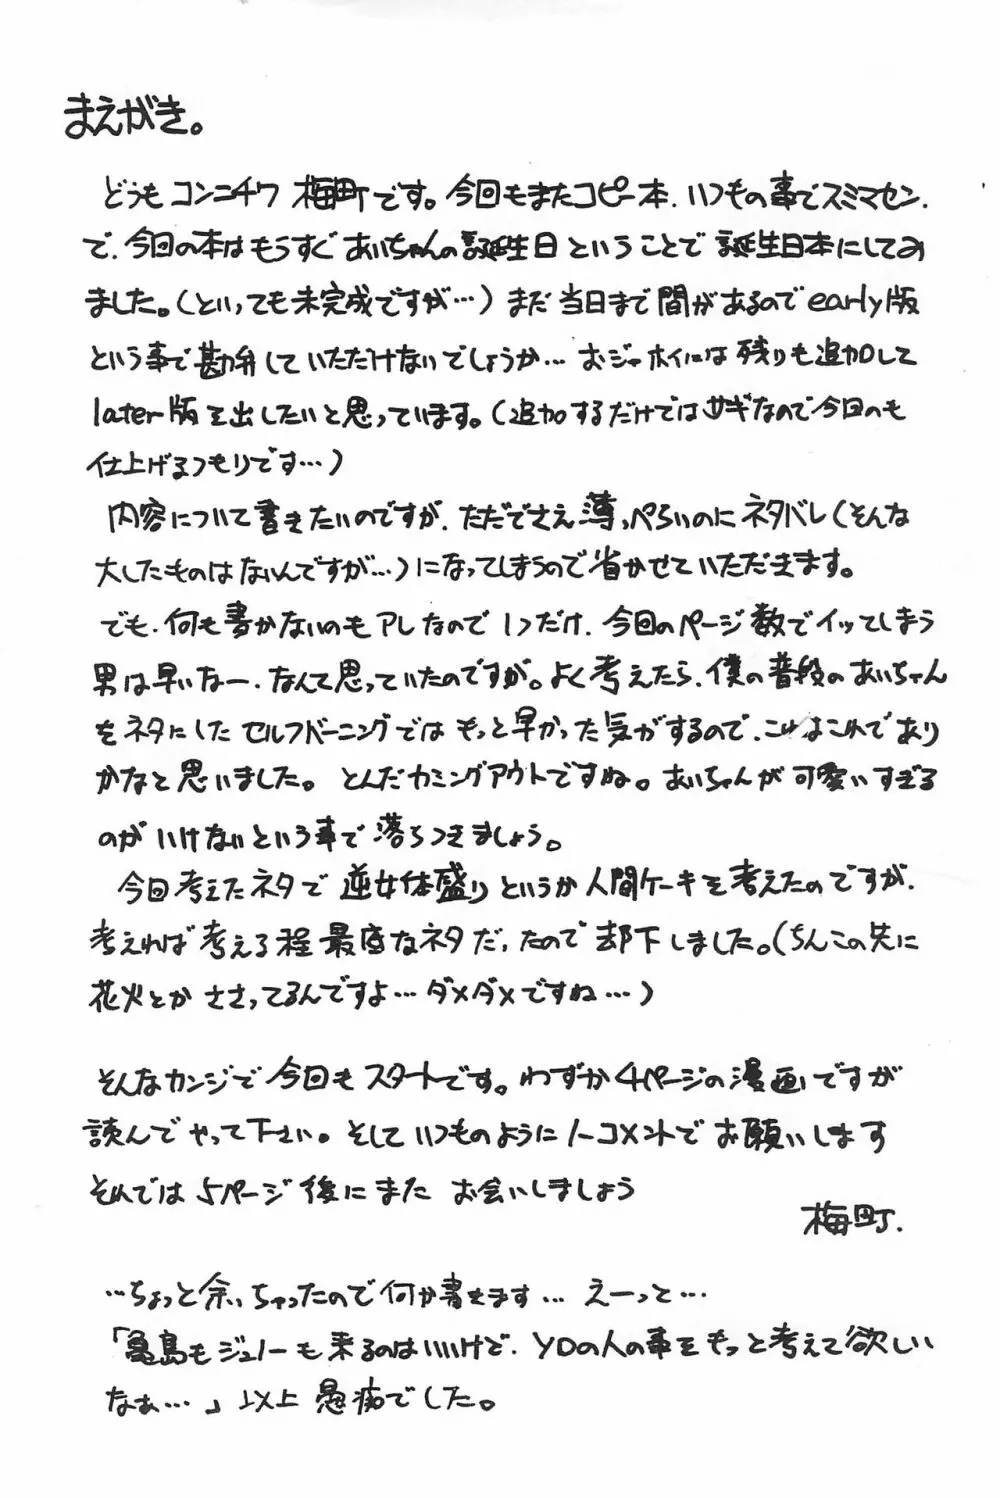 まえがき。
どうもコンニチワ 梅町です。今回もまたコピー本、いつもの事でスミマセン、
で、今回の本はもうすぐあいちゃんの誕生日ということで誕生日本にしてみ
ました。(といっても未完成ですが…)まだ当日まで間があるのでearly版
という事で勘弁していただけないでしょうか… おジャホイには残りも追加して
later版を出したいと思っています。(追加するだけではサギなので今回のも
仕上げるつもりです…)
内容について書きたいのですが、ただでさえ薄っぺらいのにネタバレ(そんな
大したものはないんですが…)になってしまうので省かせていただきます。
でも、何も書かないのもアレなので1つだけ、今回のページ数でイッてしまう
男は早いなー、なんて思っていたのですが。よく考えたら、僕の普段のあいちゃん
をネタにしたセルフバーニングではもっと早かった気がするので、これはこれであり
かなと思いました。とんだカミングアウトですね。あいちゃんが可愛いすぎる
のがいけないという事で落ちつきましょう。
今回考えたネタで逆女体盛りというか人間ケーキを考えたのですが、
考えれば考える程最低なネタだったので却下しました。(ちんこの先に
花火とかささってるんですよ…ダメダメですね…)
そんなカンジで今回もスタートです。わずか4ページの漫画ですが
読んでやって下さい。そしていつものようにノーコメントでお願いします
それでは5ページ後にまたお会いしましょう
梅町.
…ちょっと余っちゃったので何か書きます…えーっと…
「亀島もジュノーも来るのはいいけど、YDの人の事をもっと考えて欲しい
なぁ…」以上 愚痴でした。